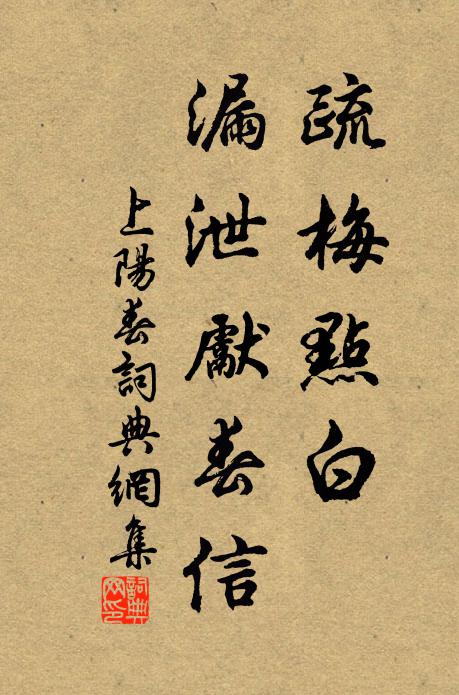 疏梅點白
漏泄獻春信
上陽春詞典網集
詞典网印